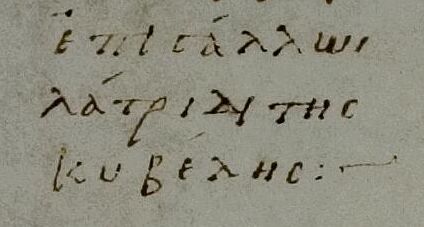 ἐπὶ γάλλωι
λάτριδι της
κυβέλης:~